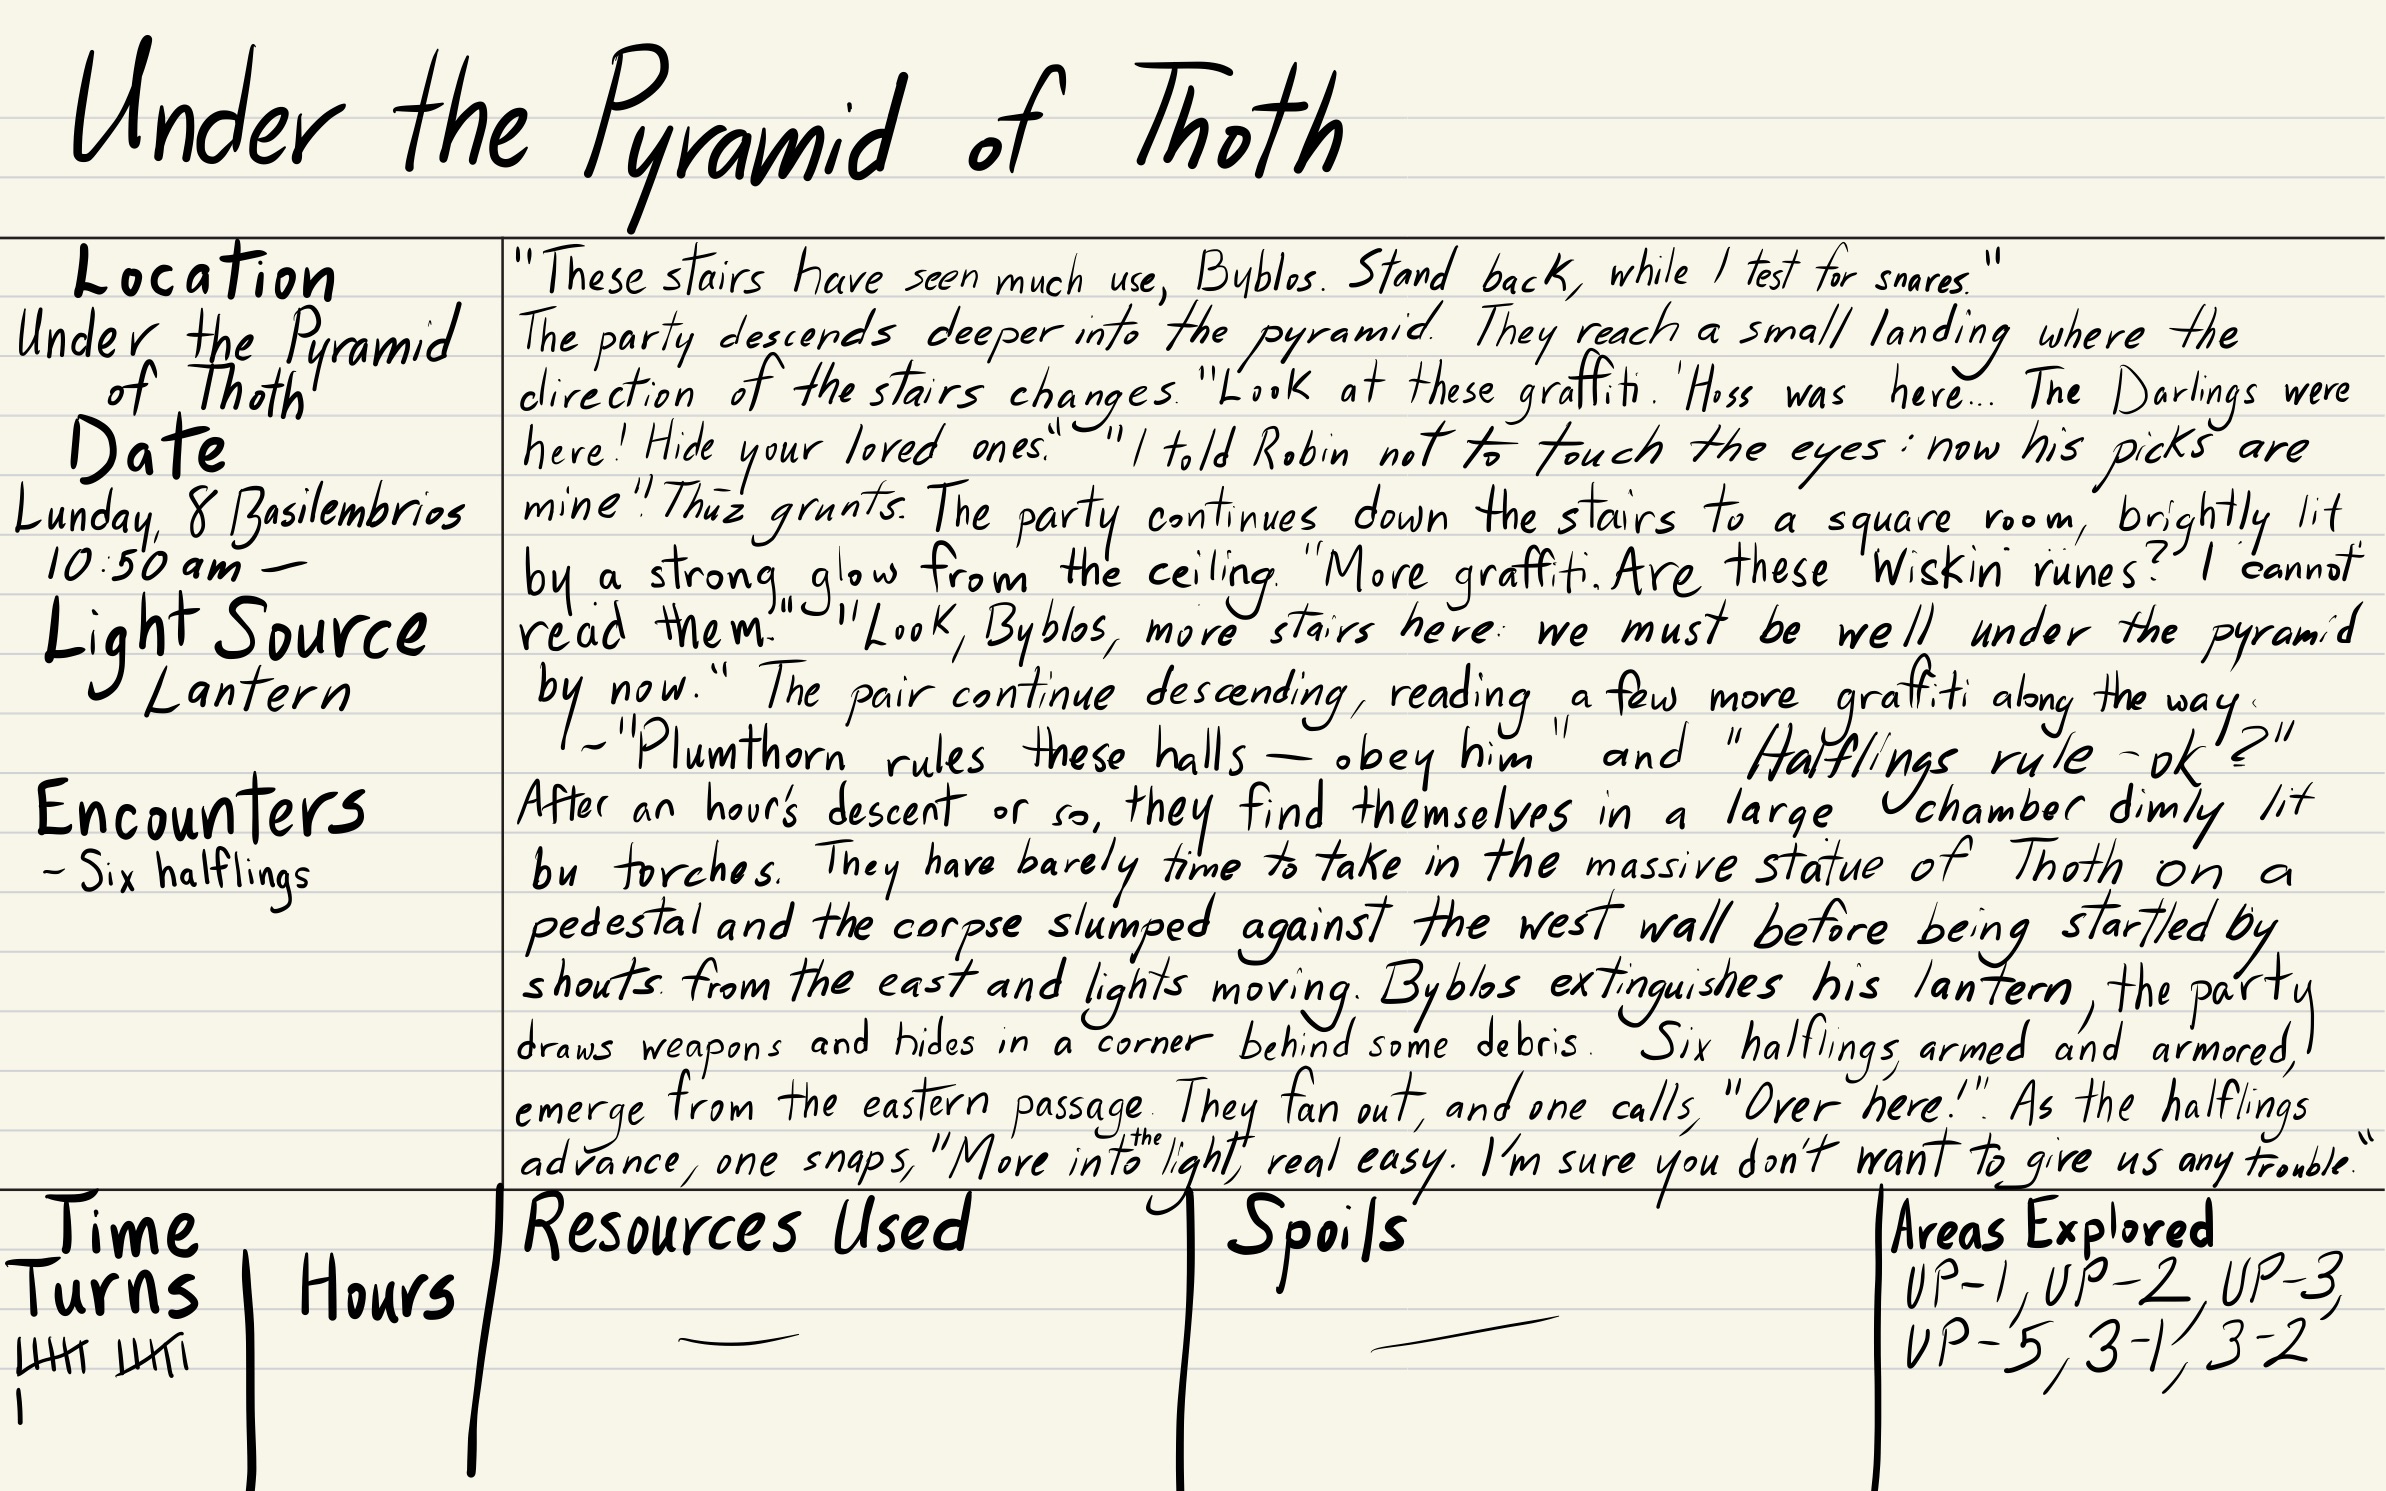 Under the Pyramid of Thoth
Location
Under the Pyramid
of Thoth
Date
Lunday, 8 Basilembrios
10:50 am —
Light Source
Lantern
Encounters
- Six halflings
"These stairs have seen much use, Byblos. Stand back, while I test for snares."
The party descends deeper into the pyramid. They reach a small landing where the
direction of the stairs changes. "Look at these graffiti. 'Hoss was here... The Darlings were
here! Hide your loved ones." "I told Robin not to touch the eyes: now his picks are
mine"! Thūz grunts. The party continues down the stairs to a square room, brightly lit
by a strong glow from the ceiling. "More graffiti. Are these Wiskin runes? I cannot
read them." "Look, Byblos, more stairs here: we must be well under the pyramid
by now." The pair continue descending, reading a few more graffiti along the way.
~"Plumthorn rules these halls — obey him" and "Halflings rule - ok?"
After an hour's descent or so, they find themselves in a large chamber dimly lit
bu torches. They have barely time to take in the massive statue of Thoth on a
pedestal and the corpse slumped against the west wall before being startled by
shouts from the east and lights moving. Byblos extinguishes his lantern, the party
draws weapons and hides in a corner behind some debris. Six halflings, armed and armored,
emerge from the eastern passage. They fan out, and one calls, "Over here!". As the halflings
advance, one snaps, "More into the light, real easy. I'm sure you don't want to give us any trouble."
Time
Turns
Hours
Resources Used
—
Spoils
—
Areas Explored
UP-1, UP-2, UP-3,
UP-5, 3-1, 3-2